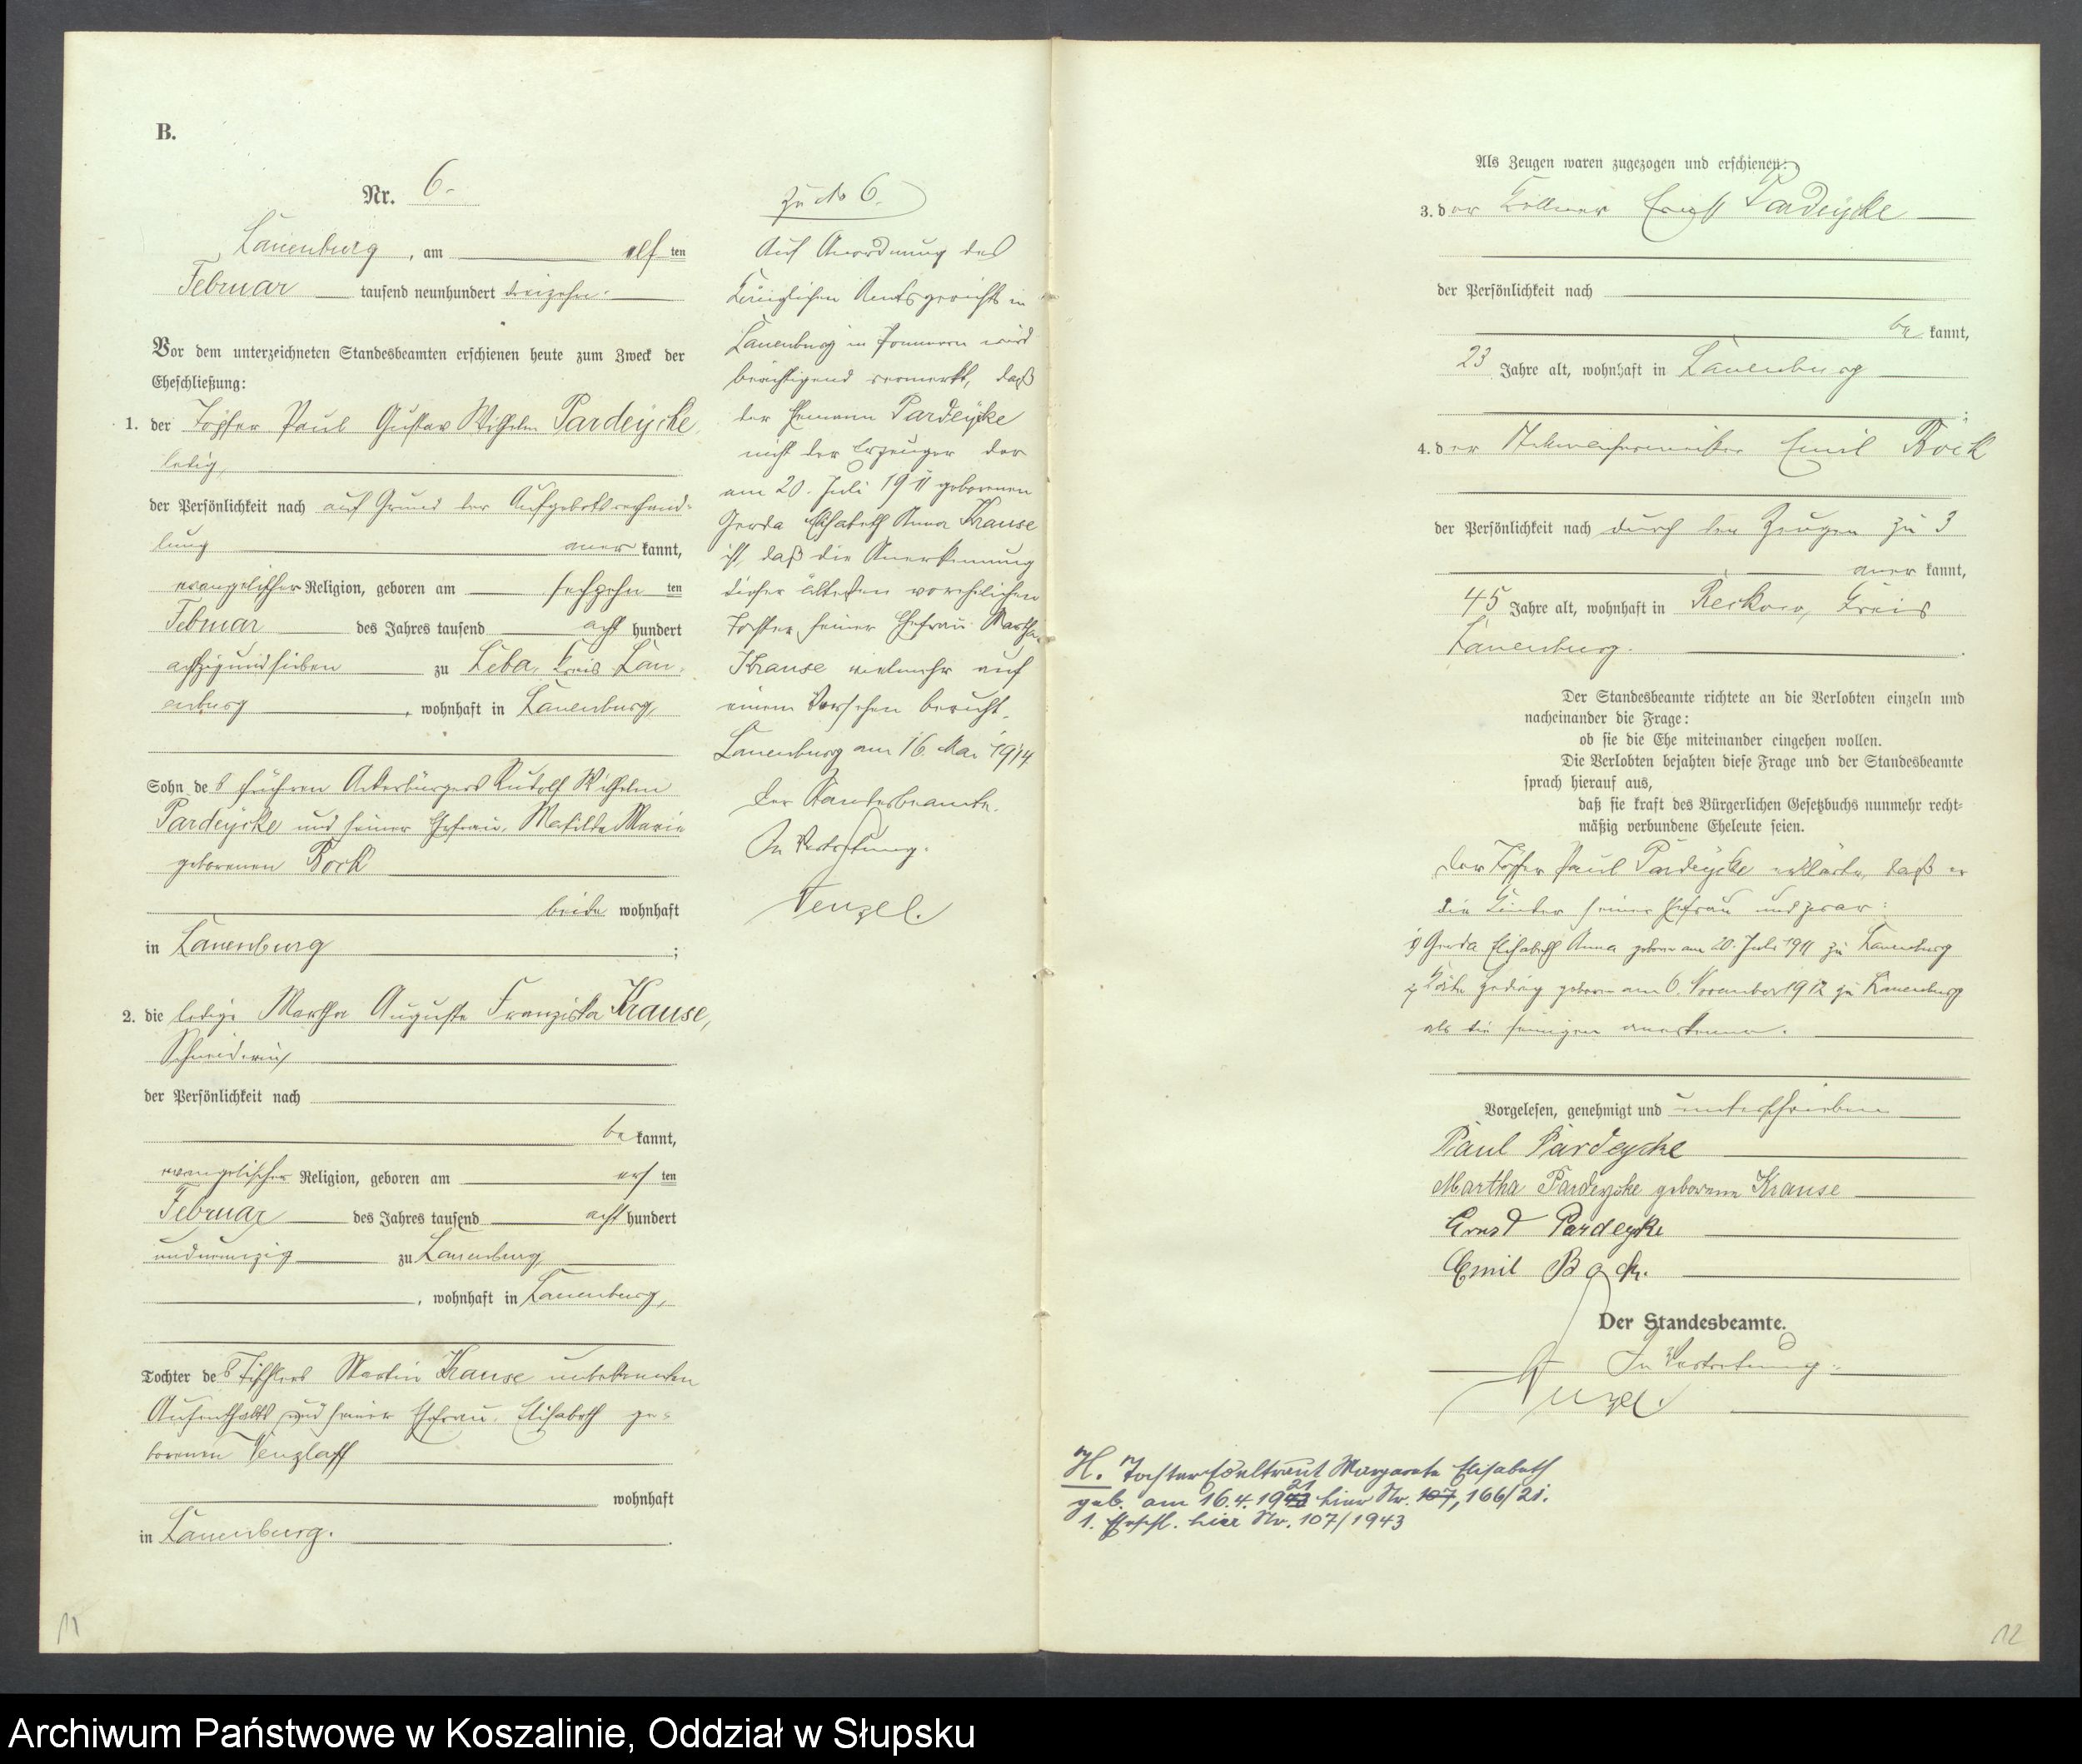 B.
Nr. 6.
Lauenburg, am elf ten
Februar tausend neunhundert dreizehn.
Vor dem unterzeichneten Standesbeamten erschienen heute zum Zweck der
Eheschließung:
1. der Töpfer Paul Gustav Wilhelm Pardeycke,
ledig,
der Persönlichkeit nach auf Grund der Aufgebotsverhand-
lung aner kannt,
evangelischer Religion, geboren am sechzehn ten
Februar des Jahres tausend acht hundert
achtzigundsieben zu Leba, Kreis Lau-
enburg, wohnhaft in Lauenburg,
Sohn des früheren Ackerbürgers Rudolf Wilhelm
Pardeycke und seiner Ehefrau, Mathilde Marie
geborenen Bock
beide wohnhaft
in Lauenburg;
2. die ledige Martha Auguste Franziska Krause,
Schneiderin,
der Persönlichkeit nach
be kannt,
evangelischer Religion, geboren am ersten
Februar des Jahres tausend acht hundert
undneunzig zu Lauenburg,
, wohnhaft in Lauenburg,
Tochter des Tischlers Martin Krause unbekannten
Aufenthalts und seiner Ehefrau, Elisabeth ge-
borenen Venzlaff
wohnhaft
in Lauenburg.
11
Zu No 6.
Auf Anordnung des
Königlichen Amtsgerichts in
Lauenburg in Pommern wird
berichtigend vermerkt, daß
der Ehemann Pardeycke
nicht der Erzeuger der
am 20. Juli 1911 geborenen
Gerda Elisabeth Anna Krause
ist, daß die Anerkennung
dieser ältesten vorehelichen
Tochter seiner Ehefrau Martha
Krause vielmehr auf
einem Versehen beruht.
Lauenburg am 16. Mai 1914
Der Standesbeamte.
In Vertretung.
Venzel.
Als Zeugen waren zugezogen und erschienen:
3. der Kellner Ernst Pardeycke
der Persönlichkeit nach
be kannt,
23 Jahre alt, wohnhaft in Lauenburg
;
4. der Emil Bock
der Persönlichkeit nach durch den Zeugen zu 3
aner kannt,
45 Jahre alt, wohnhaft in Reckow, Kreis
Lauenburg.
Der Standesbeamte richtete an die Verlobten einzeln und
nacheinander die Frage:
ob sie die Ehe miteinander eingehen wollen.
Die Verlobten bejahten diese Frage und der Standesbeamte
sprach hierauf aus,
daß sie kraft des Bürgerlichen Gesetzbuchs nunmehr recht-
mäßig verbundene Eheleute seien.
Der Töpfer Paul Pardeycke erklärte, daß er
die Kinder seiner Ehefrau und zwar:
1) Gerda Elisabeth Anna geboren am 20. Juli 1911 zu Lauenburg
2, Käthe Hedwig geboren am 6. November 1912 zu Lauenburg
als die seinigen anerkenne.
Vorgelesen, genehmigt und unterschrieben
Paul Pardeycke
Martha Pardeycke geborene Krause
Ernst Pardeycke
Emil Bock.
Der Standesbeamte.
In Vertretung.
Venzel.
H. Tochter Edeltraut Margarete Elisabeth
geb. am 16.4.1921 hier Nr. 107, 166/21.
1. Eheschl. hier Nr. 107/1943
12
Archiwum Państwowe w Koszalinie, Oddział w Słupsku